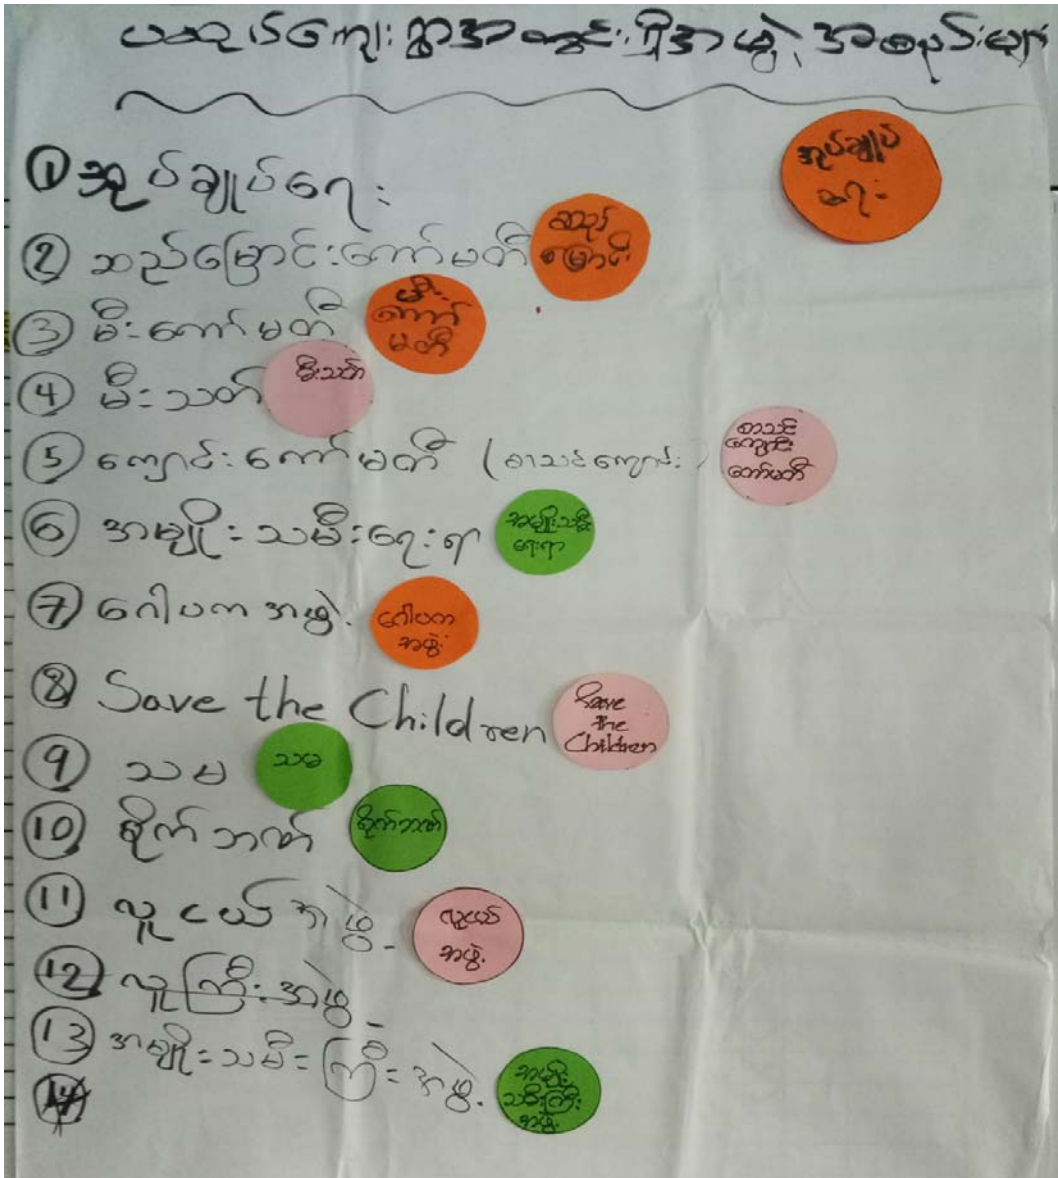 ကျေးရွာအတွင်းရှိအဖွဲ့အစည်းများ
① အုပ်ချုပ်ရေး
အုပ်ချုပ်
ရေး
② ဆည်မြောင်းကော်မတီ
ဆည်
မြောင်း
③ မီးကော်မတီ
မီး
ကော်
မတီ
④ မီးသတ်
မီးသတ်
⑤ ကျောင်းကော်မတီ (စာသင်ကျောင်း)
စာသင်
ကျောင်း
ကော်မတီ
⑥ အမျိုးသမီးရေးရာ
အမျိုးသမီး
ရေးရာ
⑦ ဂေါပကအဖွဲ့
ဂေါပက
အဖွဲ့
⑧ Save the Children
Save
the
Children
⑨ သမ
သမ
⑩ စိုက်ဘဏ်
စိုက်ဘဏ်
⑪ လူငယ်အဖွဲ့
လူငယ်
အဖွဲ့
⑫ လူကြီးအဖွဲ့
⑬ အမျိုးသမီးကြီးအဖွဲ့
အမျိုး
သမီးကြီး
အဖွဲ့
⑭